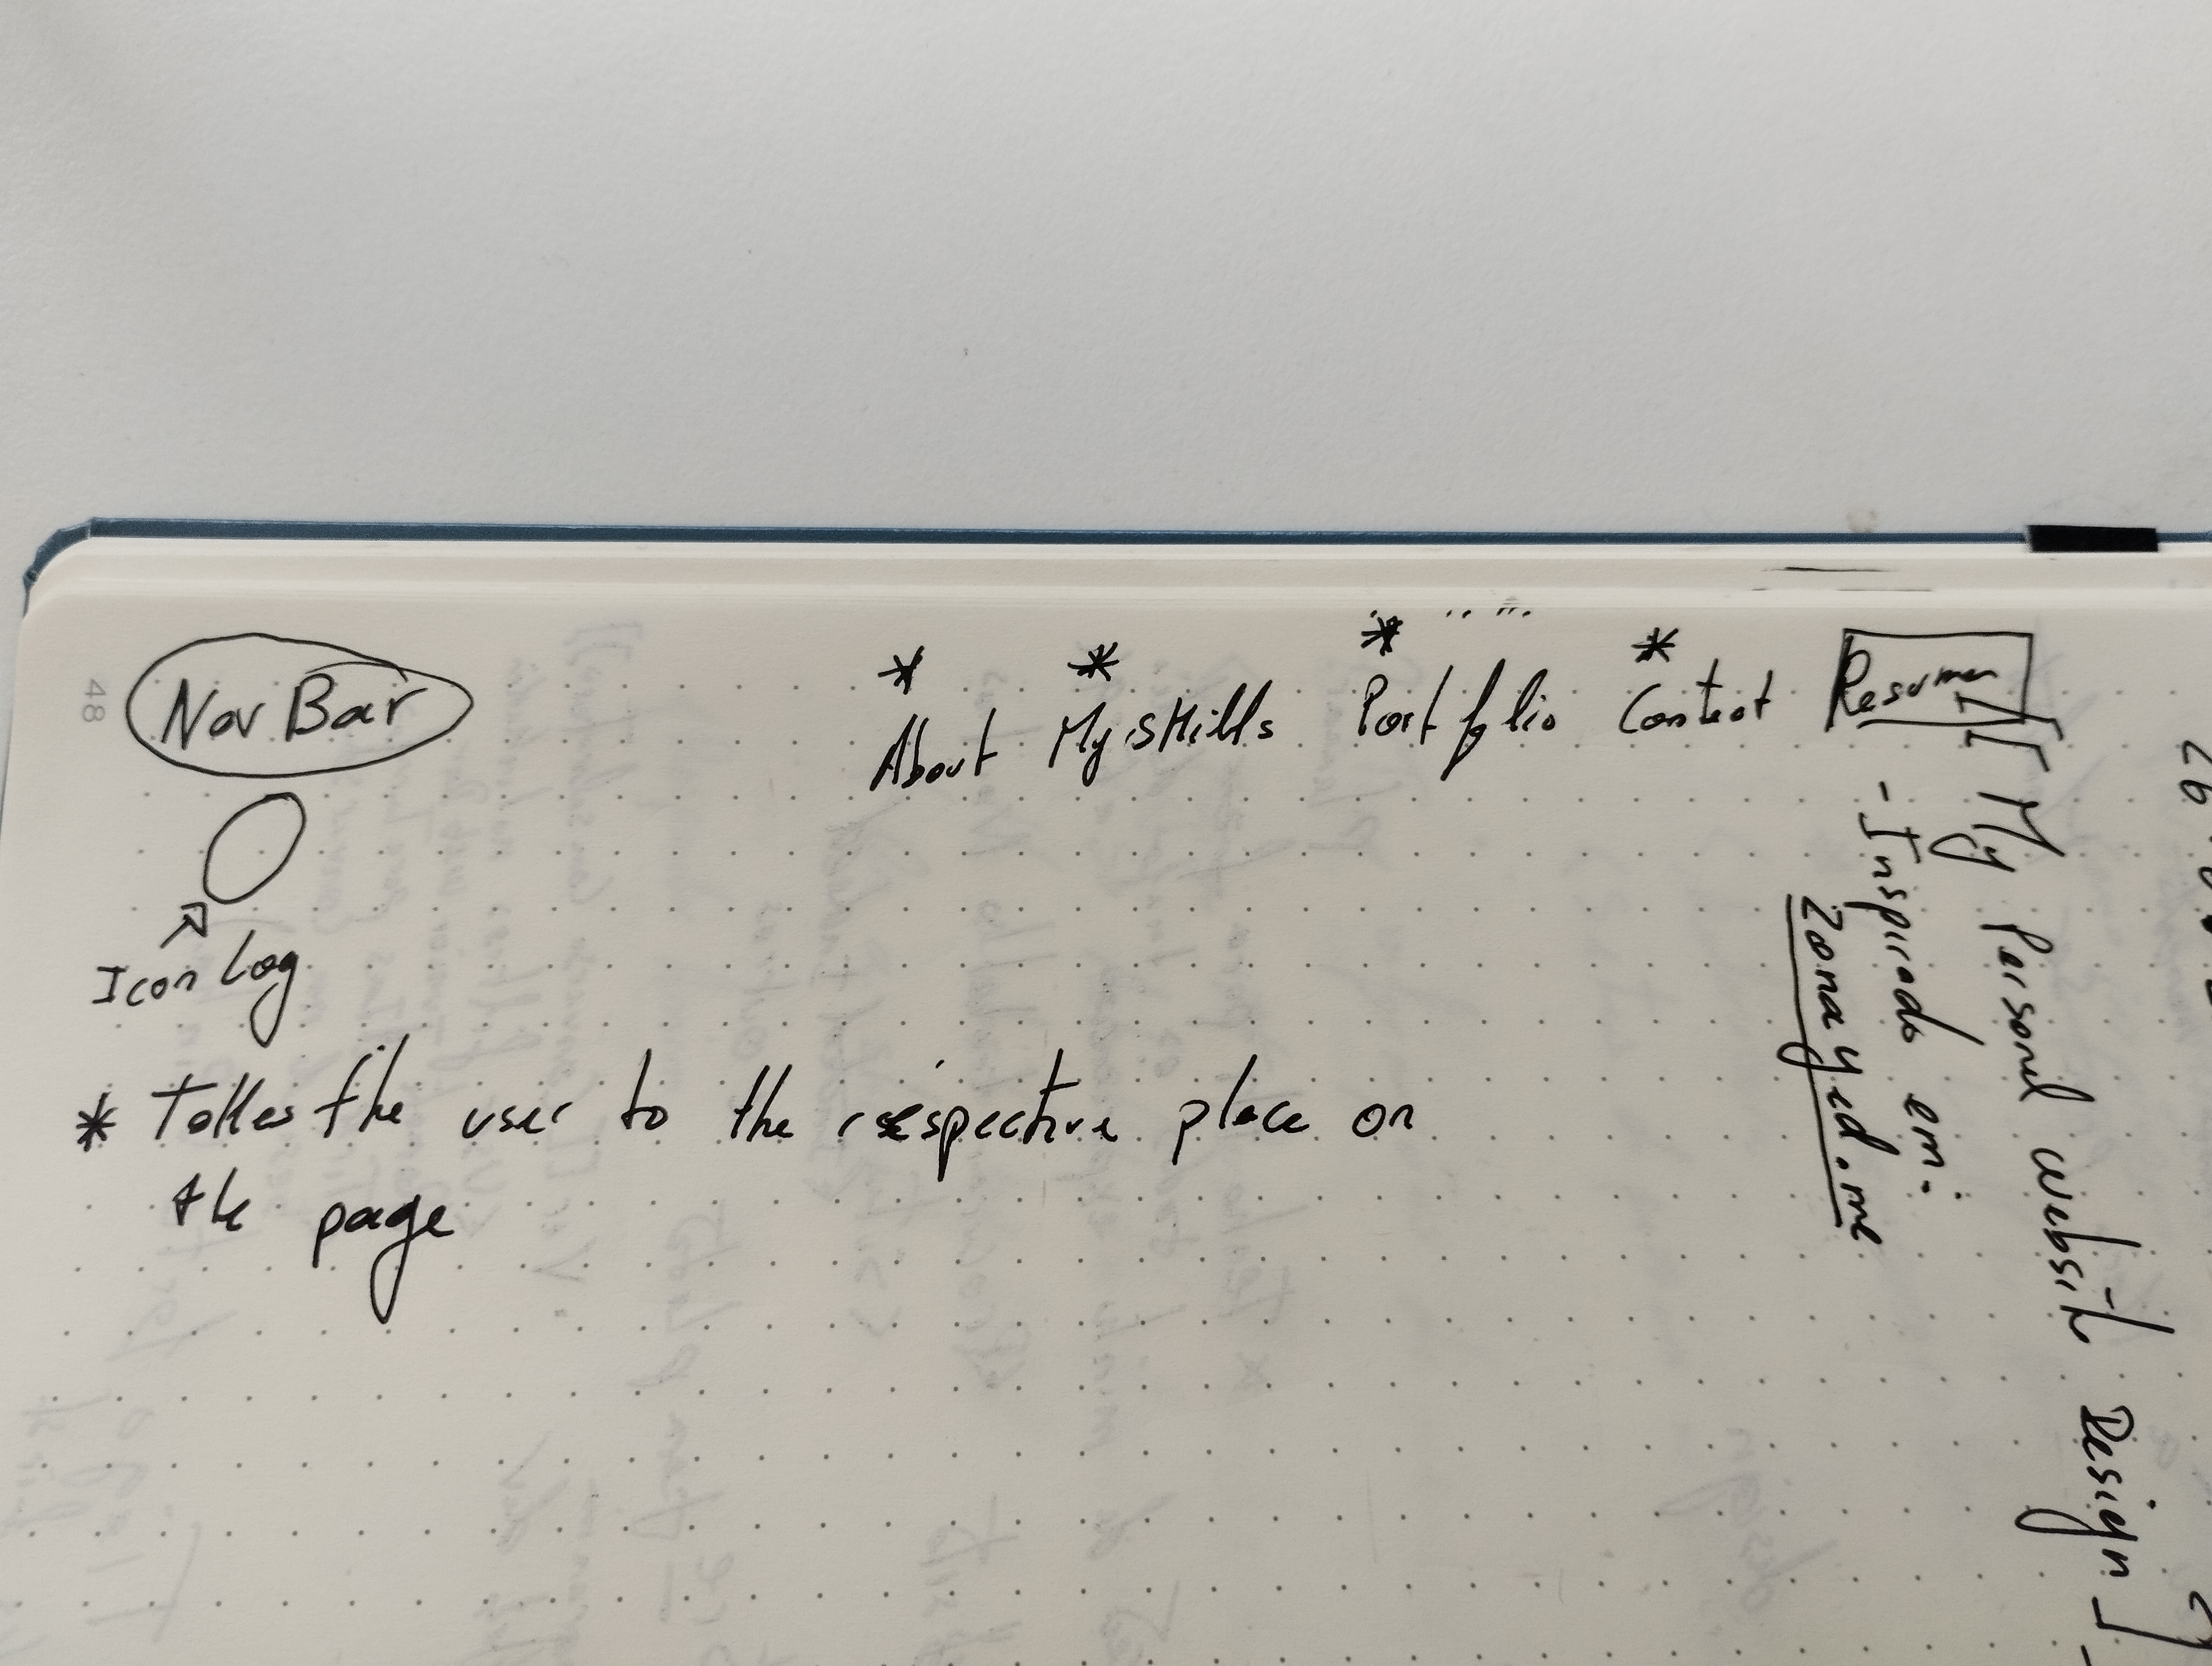 Nav Bar
* * * *
About My Skills Portfolio Contact Resumen
Icon Log
* Takes the user to the respective place on
the page
[ My Personal Website Design ]
- Inspirado em:
zonayed.me
48